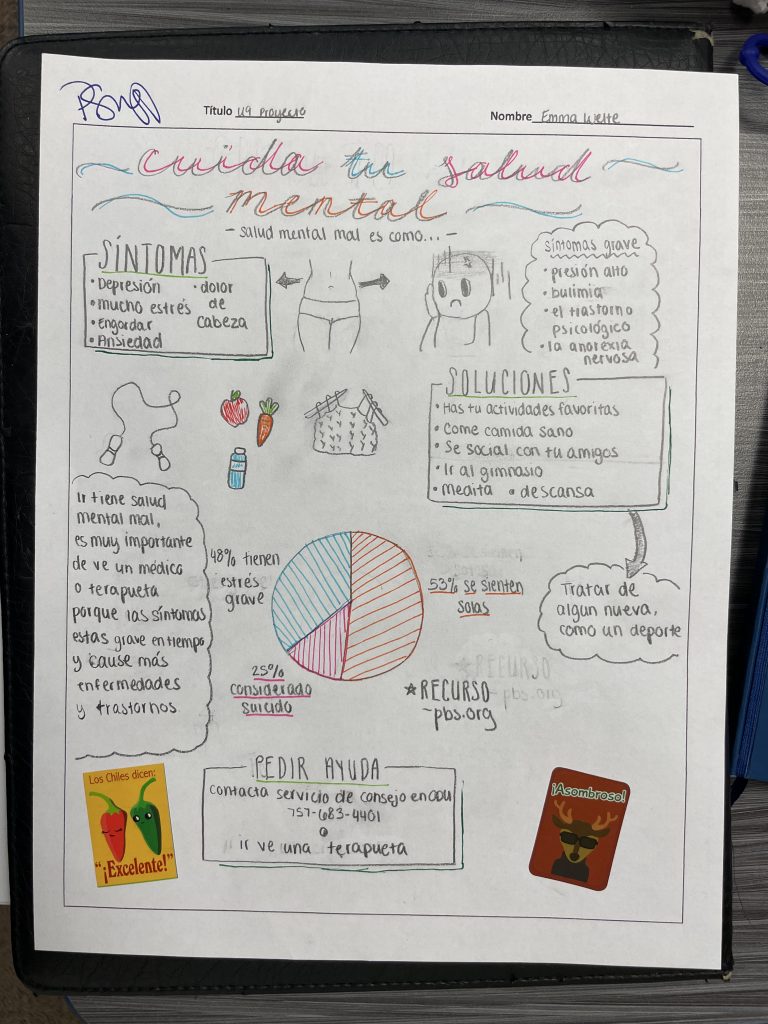 Título U9 Proyecto
Nombre Emma Welte
cuida tu salud
mental
- salud mental mal es como... -
SÍNTOMAS
• Depresión
• mucho estrés
• Engordar
• Ansiedad
• dolor
de
cabeza
síntomas grave
• presión alto
• bulimia
• el trastorno
psicológico
• la anorexia
nervosa
SOLUCIONES
• Has tu actividades favoritas
• Come camida sano
• Se social con tu amigos
• Ir al gimnasio
• Medita • descansa
Ir tiene salud
mental mal,
es muy importante
de ve un médico
o terapueta
porque las síntomas
estas grave en tiempo
y cause más
enfermedades
y trastornos
48% tienen
estrés
grave
53% se sienten
solas
25%
considerado
suicido
Tratar de
algun nueva,
como un deporte
★RECURSO
~pbs.org
PEDIR AYUDA
contacta servicio de consejo en ODU
757-683-4401
o
ir ve una terapueta
Los Chiles dicen:
"¡Excelente!"
¡Asombroso!